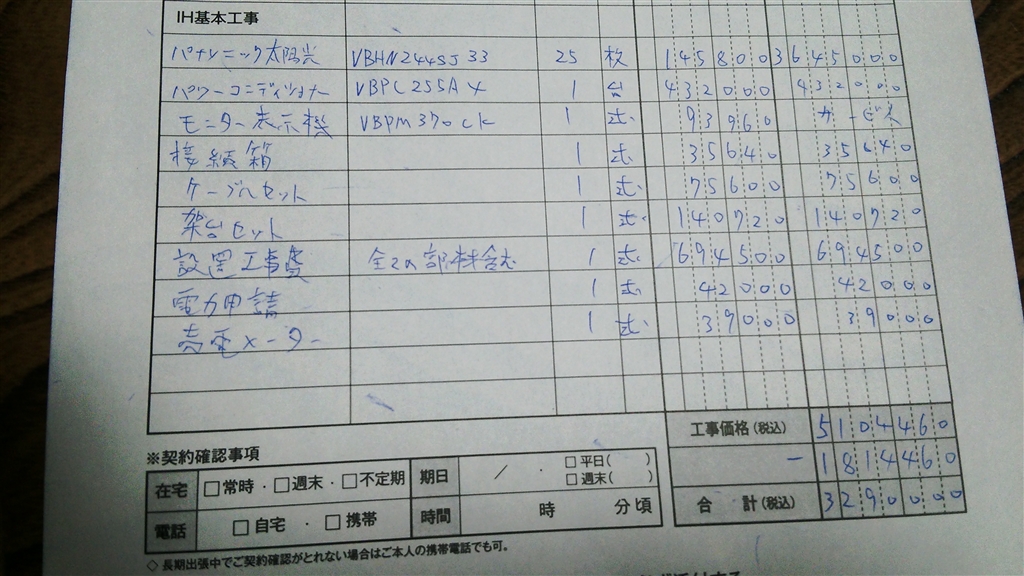 IH基本工事
パナソニック太陽光 VBHN244SJ33 25 枚 145800 3645000
パワーコンディショナー VBPC255A4 1 台 432000 432000
モニター表示機 VBPM370CK 1 式 93960 サービス
接続箱 1 式 35640 35640
ケーブルセット 1 式 75600 75600
架台セット 1 式 140720 140720
設置工事費 全ての部材含む 1 式 694500 694500
電力申請 1 式 42000 42000
売電メーター 1 式 39000 39000
工事価格(税込) 5104460
- 1814460
合計(税込) 3290000
※契約確認事項
在宅 □常時・□週末・□不定期 期日 / ・ □平日( ) □週末( )
電話 □自宅・□携帯 時間 時 分頃
◇長期出張中でご契約確認がとれない場合はご本人の携帯電話でも可。